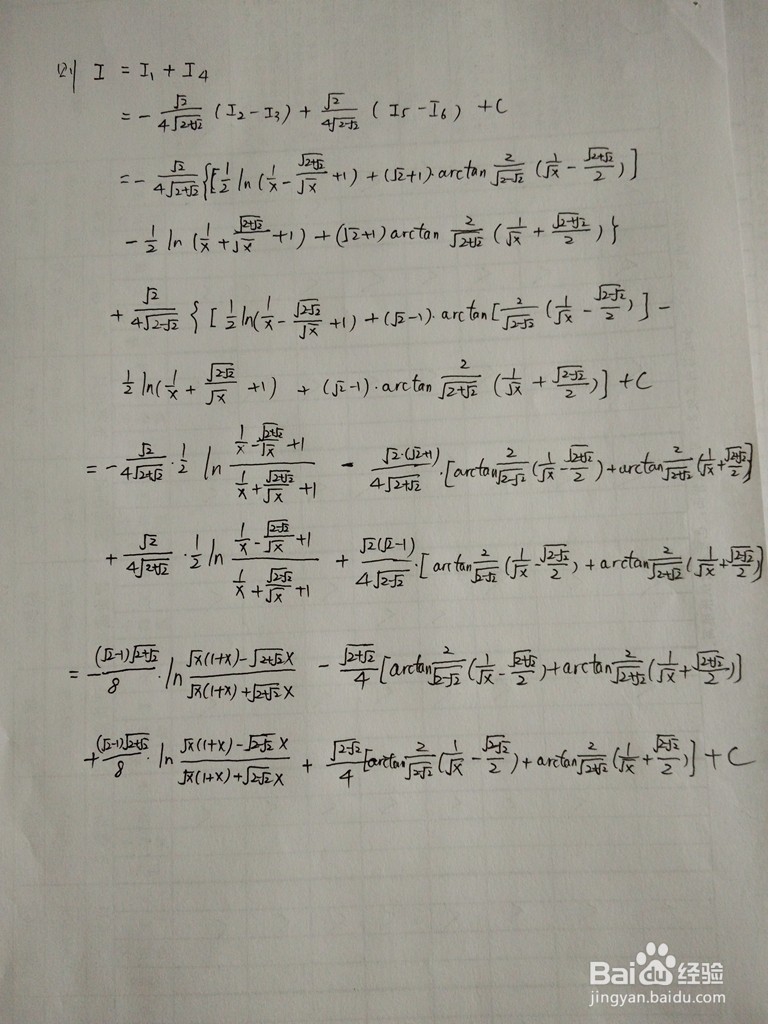 则 I = I₁ + I₄
= - √2/(4√(2+√2)) (I₂ - I₃) + √2/(4√(2-√2)) (I₅ - I₆) + C
= - √2/(4√(2+√2)) {[1/2 ln(1/x - √(2+√2)/√x + 1) + (√2+1)·arctan 2/√(2-√2) (1/√x - √(2+√2)/2)]
- 1/2 ln(1/x + √(2+√2)/√x + 1) + (√2+1) arctan 2/√(2+√2) (1/√x + √(2+√2)/2)}
+ √2/(4√(2-√2)) {[1/2 ln(1/x - √(2-√2)/√x + 1) + (√2-1)·arctan[2/√(2-√2) (1/√x - √(2-√2)/2)] -
1/2 ln(1/x + √(2-√2)/√x + 1) + (√2-1)·arctan 2/√(2+√2) (1/√x + √(2-√2)/2)] + C
= - √2/(4√(2+√2)) · 1/2 ln (1/x - √(2+√2)/√x + 1)/(1/x + √(2+√2)/√x + 1) - √2·(√2+1)/(4√(2+√2)) ·[arctan 2/√(2-√2) (1/√x - √(2+√2)/2) + arctan 2/√(2+√2) (1/√x + √(2+√2)/2)]
+ √2/(4√(2+√2)) · 1/2 ln (1/x - √(2-√2)/√x + 1)/(1/x + √(2-√2)/√x + 1) + √2(√2-1)/(4√(2-√2)) ·[arctan 2/√(2-√2) (1/√x - √(2-√2)/2) + arctan 2/√(2+√2) (1/√x + √(2-√2)/2)]
= - (√2-1)√(2+√2)/8 · ln (√x(1+x) - √(2+√2)x)/(√x(1+x) + √(2+√2)x) - √(2+√2)/4 [arctan 2/√(2-√2) (1/√x - √(2+√2)/2) + arctan 2/√(2+√2) (1/√x + √(2+√2)/2)]
+ (√2-1)√(2+√2)/8 · ln (√x(1+x) - √(2-√2)x)/(√x(1+x) + √(2-√2)x) + √(2-√2)/4 [arctan 2/√(2-√2) (1/√x - √(2-√2)/2) + arctan 2/√(2+√2) (1/√x + √(2-√2)/2)] + C
Baidu经验
jingyan.baidu.com